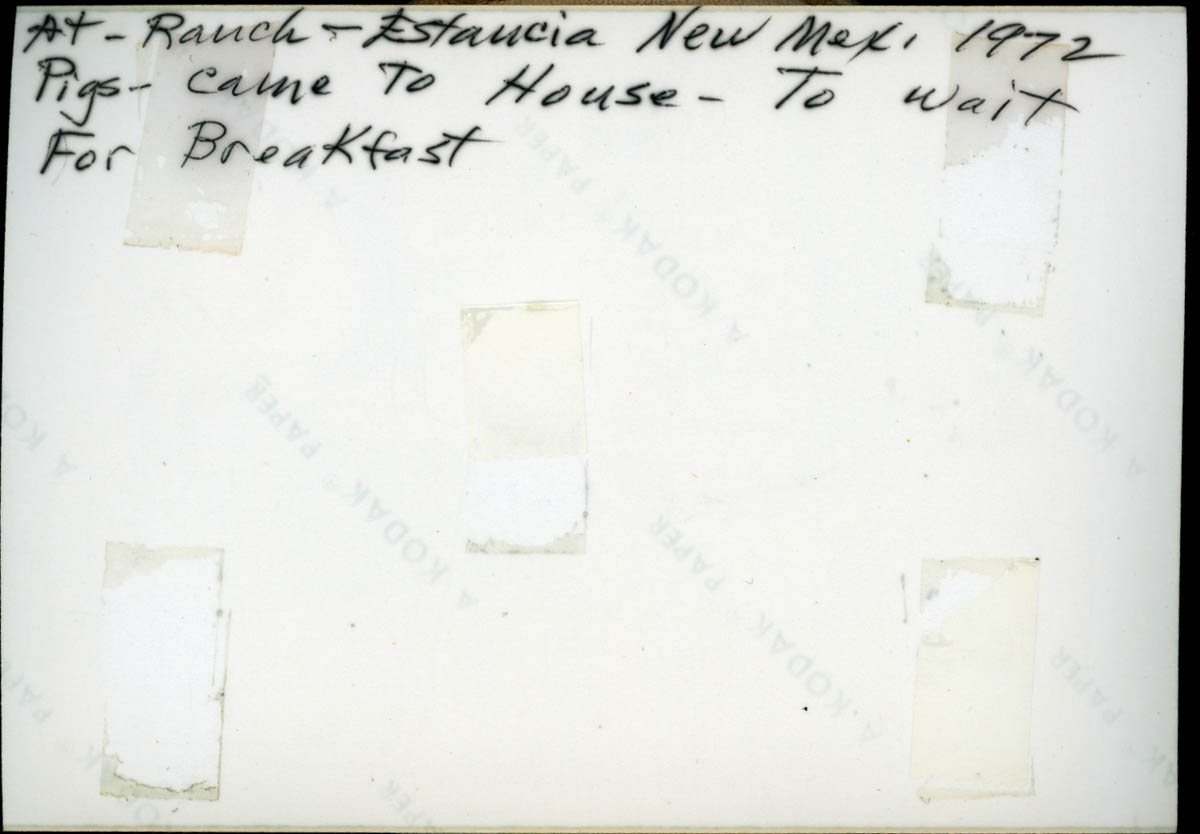 At - Ranch - Estancia New Mex. 1972
Pigs - came To House - To wait
For Breakfast
A KODAK PAPER
A KODAK PAPER
A KODAK PAPER
A KODAK PAPER